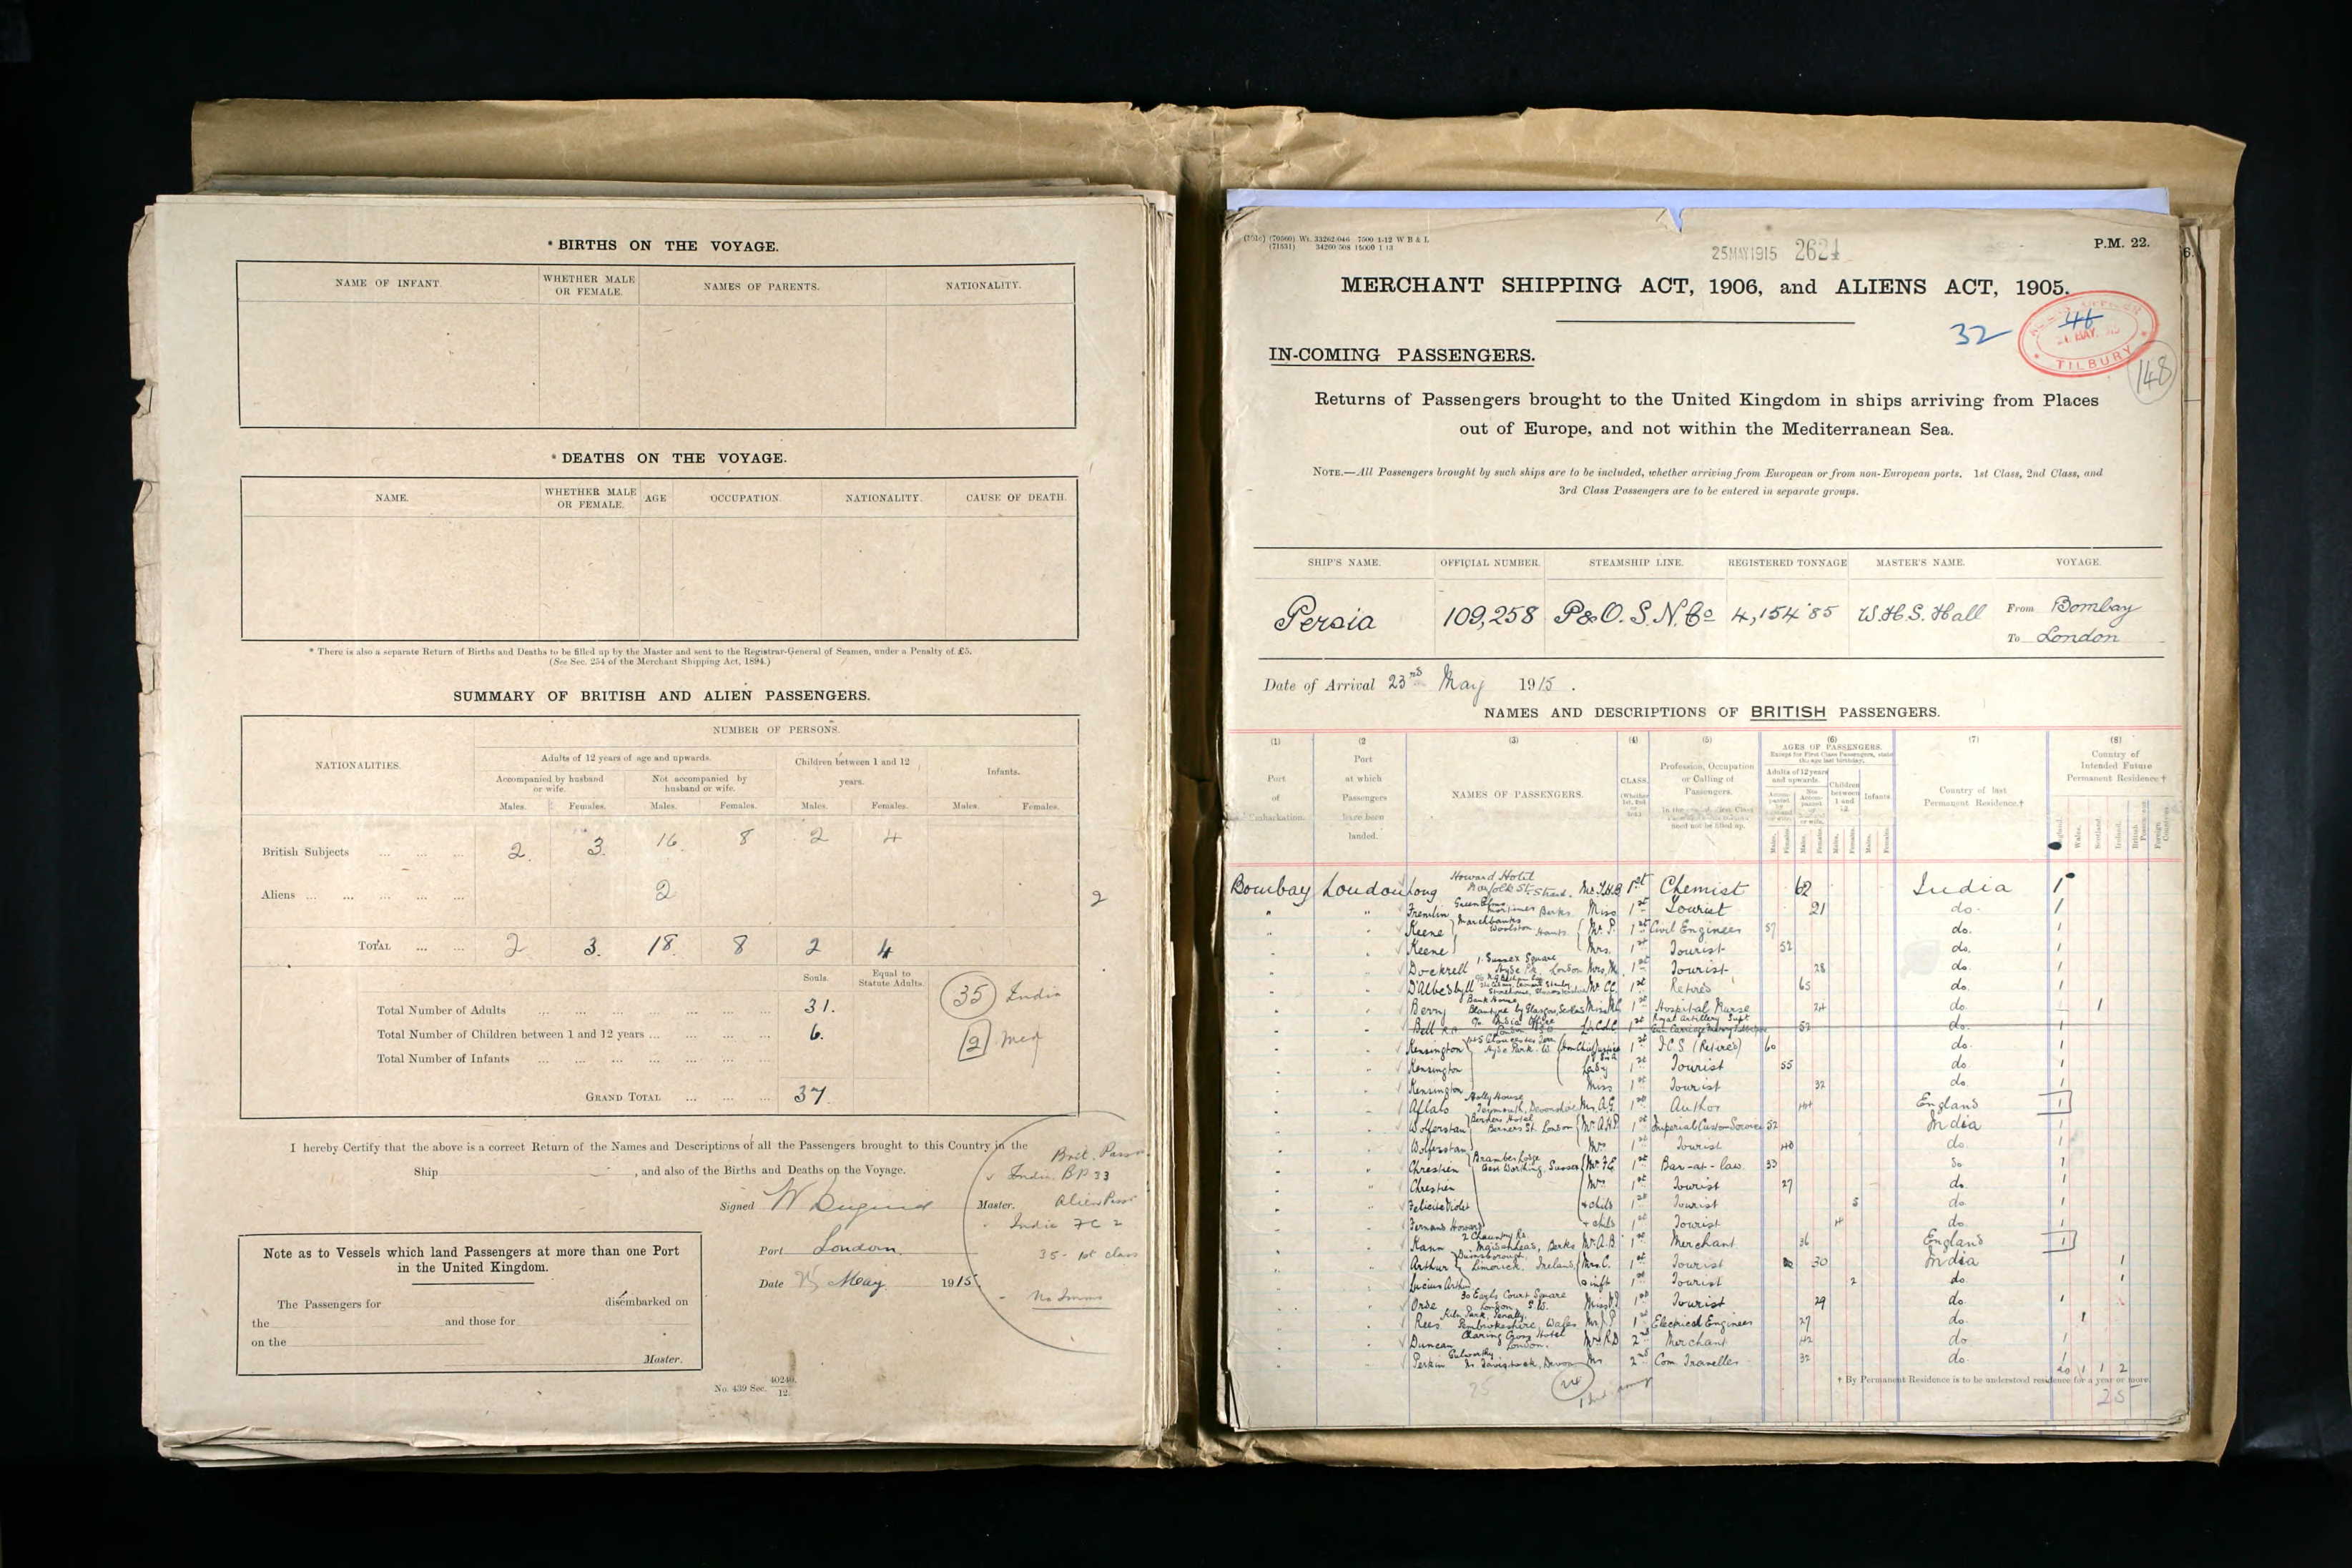 * BIRTHS ON THE VOYAGE.
NAME OF INFANT.
WHETHER MALE OR FEMALE.
NAMES OF PARENTS.
NATIONALITY.
* DEATHS ON THE VOYAGE.
NAME.
WHETHER MALE OR FEMALE.
AGE
OCCUPATION.
NATIONALITY.
CAUSE OF DEATH.
* There is also a separate Return of Births and Deaths to be filled up by the Master and sent to the Registrar-General of Seamen, under a Penalty of £5.
(See Sec. 254 of the Merchant Shipping Act, 1894.)
SUMMARY OF BRITISH AND ALIEN PASSENGERS.
NATIONALITIES.
NUMBER OF PERSONS.
Adults of 12 years of age and upwards.
Children between 1 and 12 years.
Infants.
Accompanied by husband or wife.
Not accompanied by husband or wife.
Males. Females. Males. Females. Males. Females. Males. Females.
British Subjects ... ... ... 2. 3. 16. 8 2 4
Aliens ... ... ... ... ... 2 2
TOTAL ... ... 2 3. 18. 8 2 4
Souls.
Equal to Statute Adults.
Total Number of Adults 31.
Total Number of Children between 1 and 12 years ... 6.
Total Number of Infants
GRAND TOTAL 37.
35 India
2 Med
I hereby Certify that the above is a correct Return of the Names and Descriptions of all the Passengers brought to this Country in the
Ship , and also of the Births and Deaths on the Voyage.
Signed W Master.
Port London.
Date 25 May 1915
Brit. Pass
India BP 33
Alien Pass
India FC 2
35 - 1st class
Note as to Vessels which land Passengers at more than one Port
in the United Kingdom.
The Passengers for disembarked on
the and those for
on the
Master.
No. 439 Sec. 40240. 12.
25 MAY 1915 2624
P.M. 22.
MERCHANT SHIPPING ACT, 1906, and ALIENS ACT, 1905.
32
46
TILBURY
148
IN-COMING PASSENGERS.
Returns of Passengers brought to the United Kingdom in ships arriving from Places
out of Europe, and not within the Mediterranean Sea.
NOTE.—All Passengers brought by such ships are to be included, whether arriving from European or from non-European ports. 1st Class, 2nd Class, and
3rd Class Passengers are to be entered in separate groups.
SHIP'S NAME. OFFICIAL NUMBER. STEAMSHIP LINE. REGISTERED TONNAGE MASTER'S NAME. VOYAGE.
Persia 109,258 P&O. S. N. Co 4,154.85 W.H.S. Hall From Bombay
To London
Date of Arrival 23rd May 1915.
NAMES AND DESCRIPTIONS OF BRITISH PASSENGERS.
(1) (2 (3) (4) (5) (6) (7) (8)
Port of Embarkation.
Port at which Passengers have been landed.
NAMES OF PASSENGERS.
CLASS.
Profession, Occupation or Calling of Passengers.
AGES OF PASSENGERS.
Adults of 12 years and upwards.
Children between 1 and 12.
Infants
Country of last Permanent Residence.†
Country of Intended Future Permanent Residence †
Bombay London Long Howard Hotel Norfolk St. Strand. Mr. 1st Chemist 62 India 1
Fremlin Berks Miss 1st Tourist 21 do. 1
Keene Hants Mr. P. 1st Civil Engineer 57 do. 1
Keene Mrs. 1st Tourist 52 do. 1
Dockrell 1. Sussex Square Hyde Pk. London Mrs. M. 1st Tourist 28 do. 1
Mr 1st Retired 65 do. 1
Berry Miss 1st Hospital Nurse 24 do. 1
Bell R.A. c/o India Office London 1st Royal Artillery Supt 52 do. 1
Kensington Hyde Park. W. 1st I.C.S (Retired) 60 do. 1
Kensington Lady 1st Tourist 55 do. 1
Kensington Miss 1st Tourist 32 do. 1
Aflalo Holly House Teignmouth, Devonshire Mr. A.G. 1st Author 44 England 1
Wolferstan Berners Hotel Berners St. London Mr. 1st Imperial Custom Service 52 India 1
Wolferstan Mrs 1st Tourist 40 do. 1
Chrestien West Worthing. Sussex Mr. 1st Bar-at-law. 33 do 1
Chrestien Mrs 1st Tourist 27 do 1
Felicite Violet + child 1st Tourist 5 do 1
Howard + child 1st Tourist 4 do. 1
Kann Maidenhead, Berks Mr. A.B. 1st Merchant 36 England 1
Arthur Limerick. Ireland. Mrs. C. 1st Tourist 30 India 1
Lucius Arthur 1st Tourist 2 do. 1
Orde 30 Earls Court Square London. S.W. Miss 1st Tourist 29 do. 1
Rees Kiln Park, Penally. Pembrokeshire, Wales Mr. 1st Electrical Engineer 27 do. 1
Duncan Charing Cross Hotel London. Mr. R.D 2nd Merchant 42 do 1
Perkin Gulworthy Nr. Tavistock, Devon Mr 2nd Com. Traveller 32 do. 1
20 1 1 2
† By Permanent Residence is to be understood residence for a year or more.
25
25